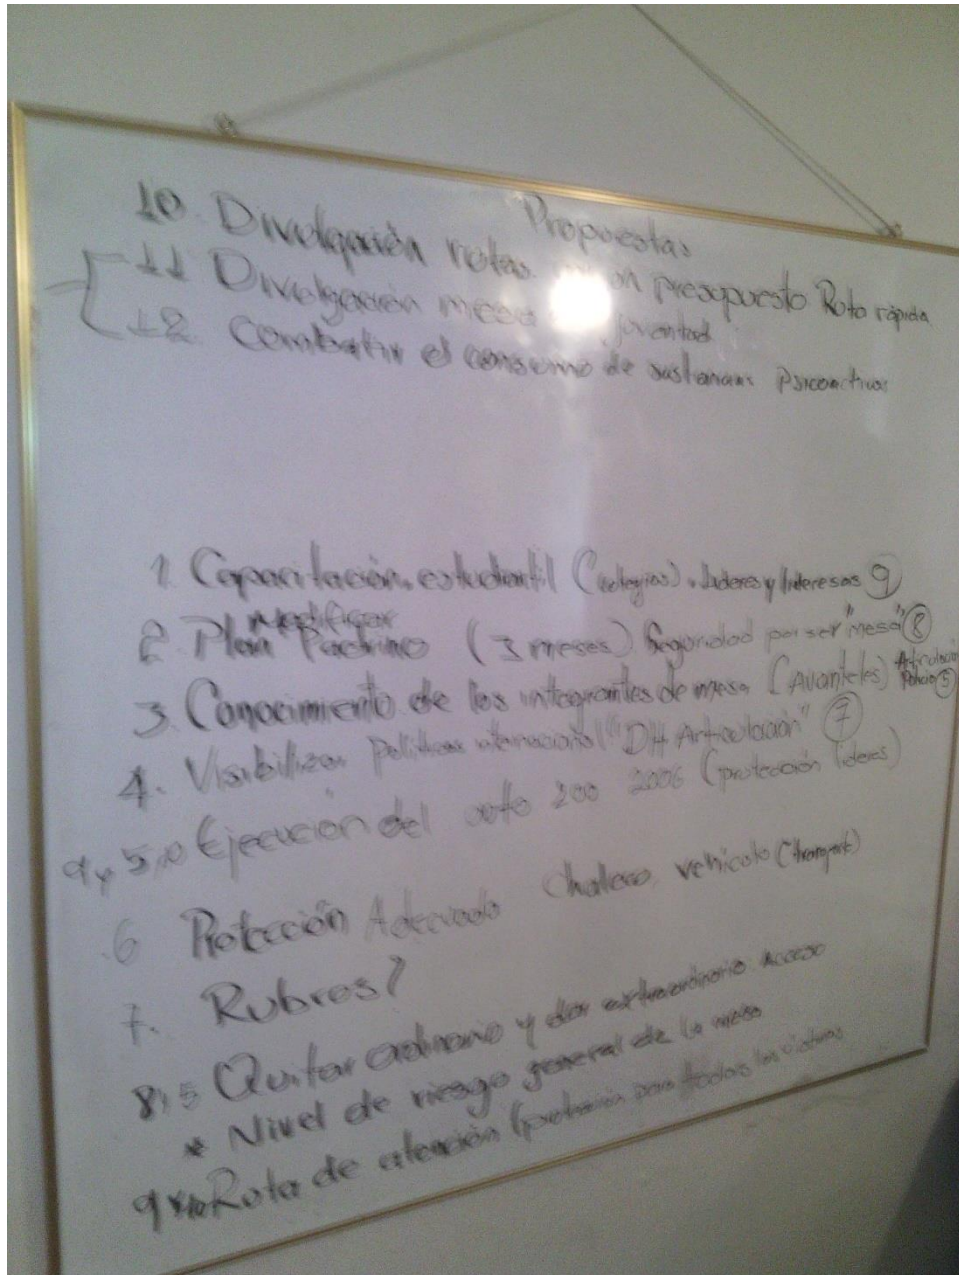 Propuestas
10. Divulgación rutas con presupuesto Ruta rápida
11 Divulgación mesa juventud
12. Combatir el consumo de sustancias psicoactivas
1. Capacitación estudiantil (colegios). Lideres y lideresas 9
Modificar
2 Plan Padrino (3 meses) Seguridad por ser "mesa" 8
3. Conocimiento de los integrantes de mesa (Avanteles) Articulación Policia 5
4. Visibilizar politicas internacional "DH Articulación" 7
9 y 5. Ejecución del auto 200 2006 (protección lideres)
6 Protección Adecuada Chaleco, vehiculo (transporte)
7. Rubros?
8, 5 Quitar ordinario y dar extraordinario Acceso
* Nivel de riesgo general de la mesa
9 y 10 Ruta de atención (protección para todas las victimas